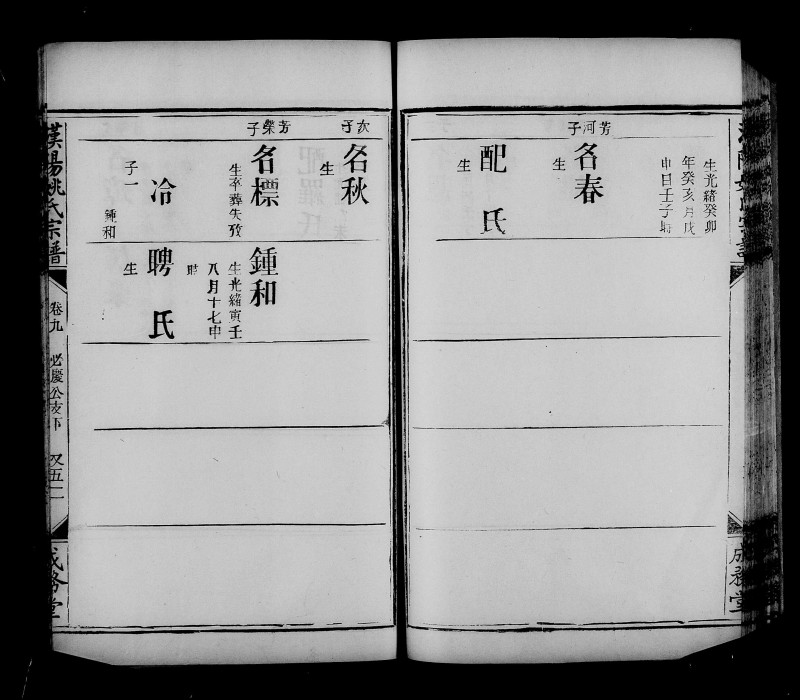 生光緒癸卯
年癸亥月戊
申日壬子時
芳河子
名春
生
配 氏
生
成務堂
次子
名秋
生
芳榮子
名標
生卒葬失攷
冷
子一
鍾和
鍾和
生光緒寅壬
八月十七申
時
聘 氏
生
漢陽姚氏宗譜
卷九
必慶公支下
又五二
成務堂